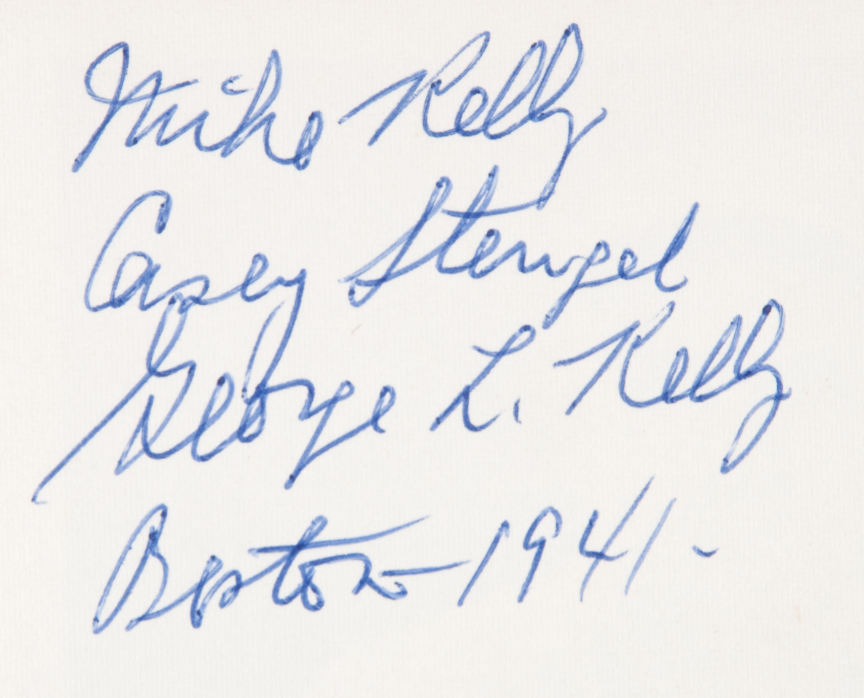 Mike Kelly
Casey Stengel
George L. Kelly
Boston - 1941 -